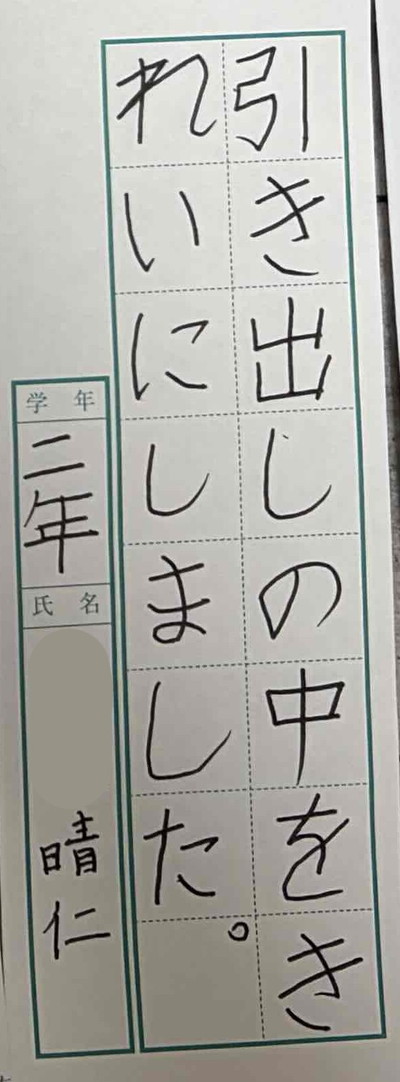 引き出しの中をき
れいにしました。
学年
二年
氏名
晴仁